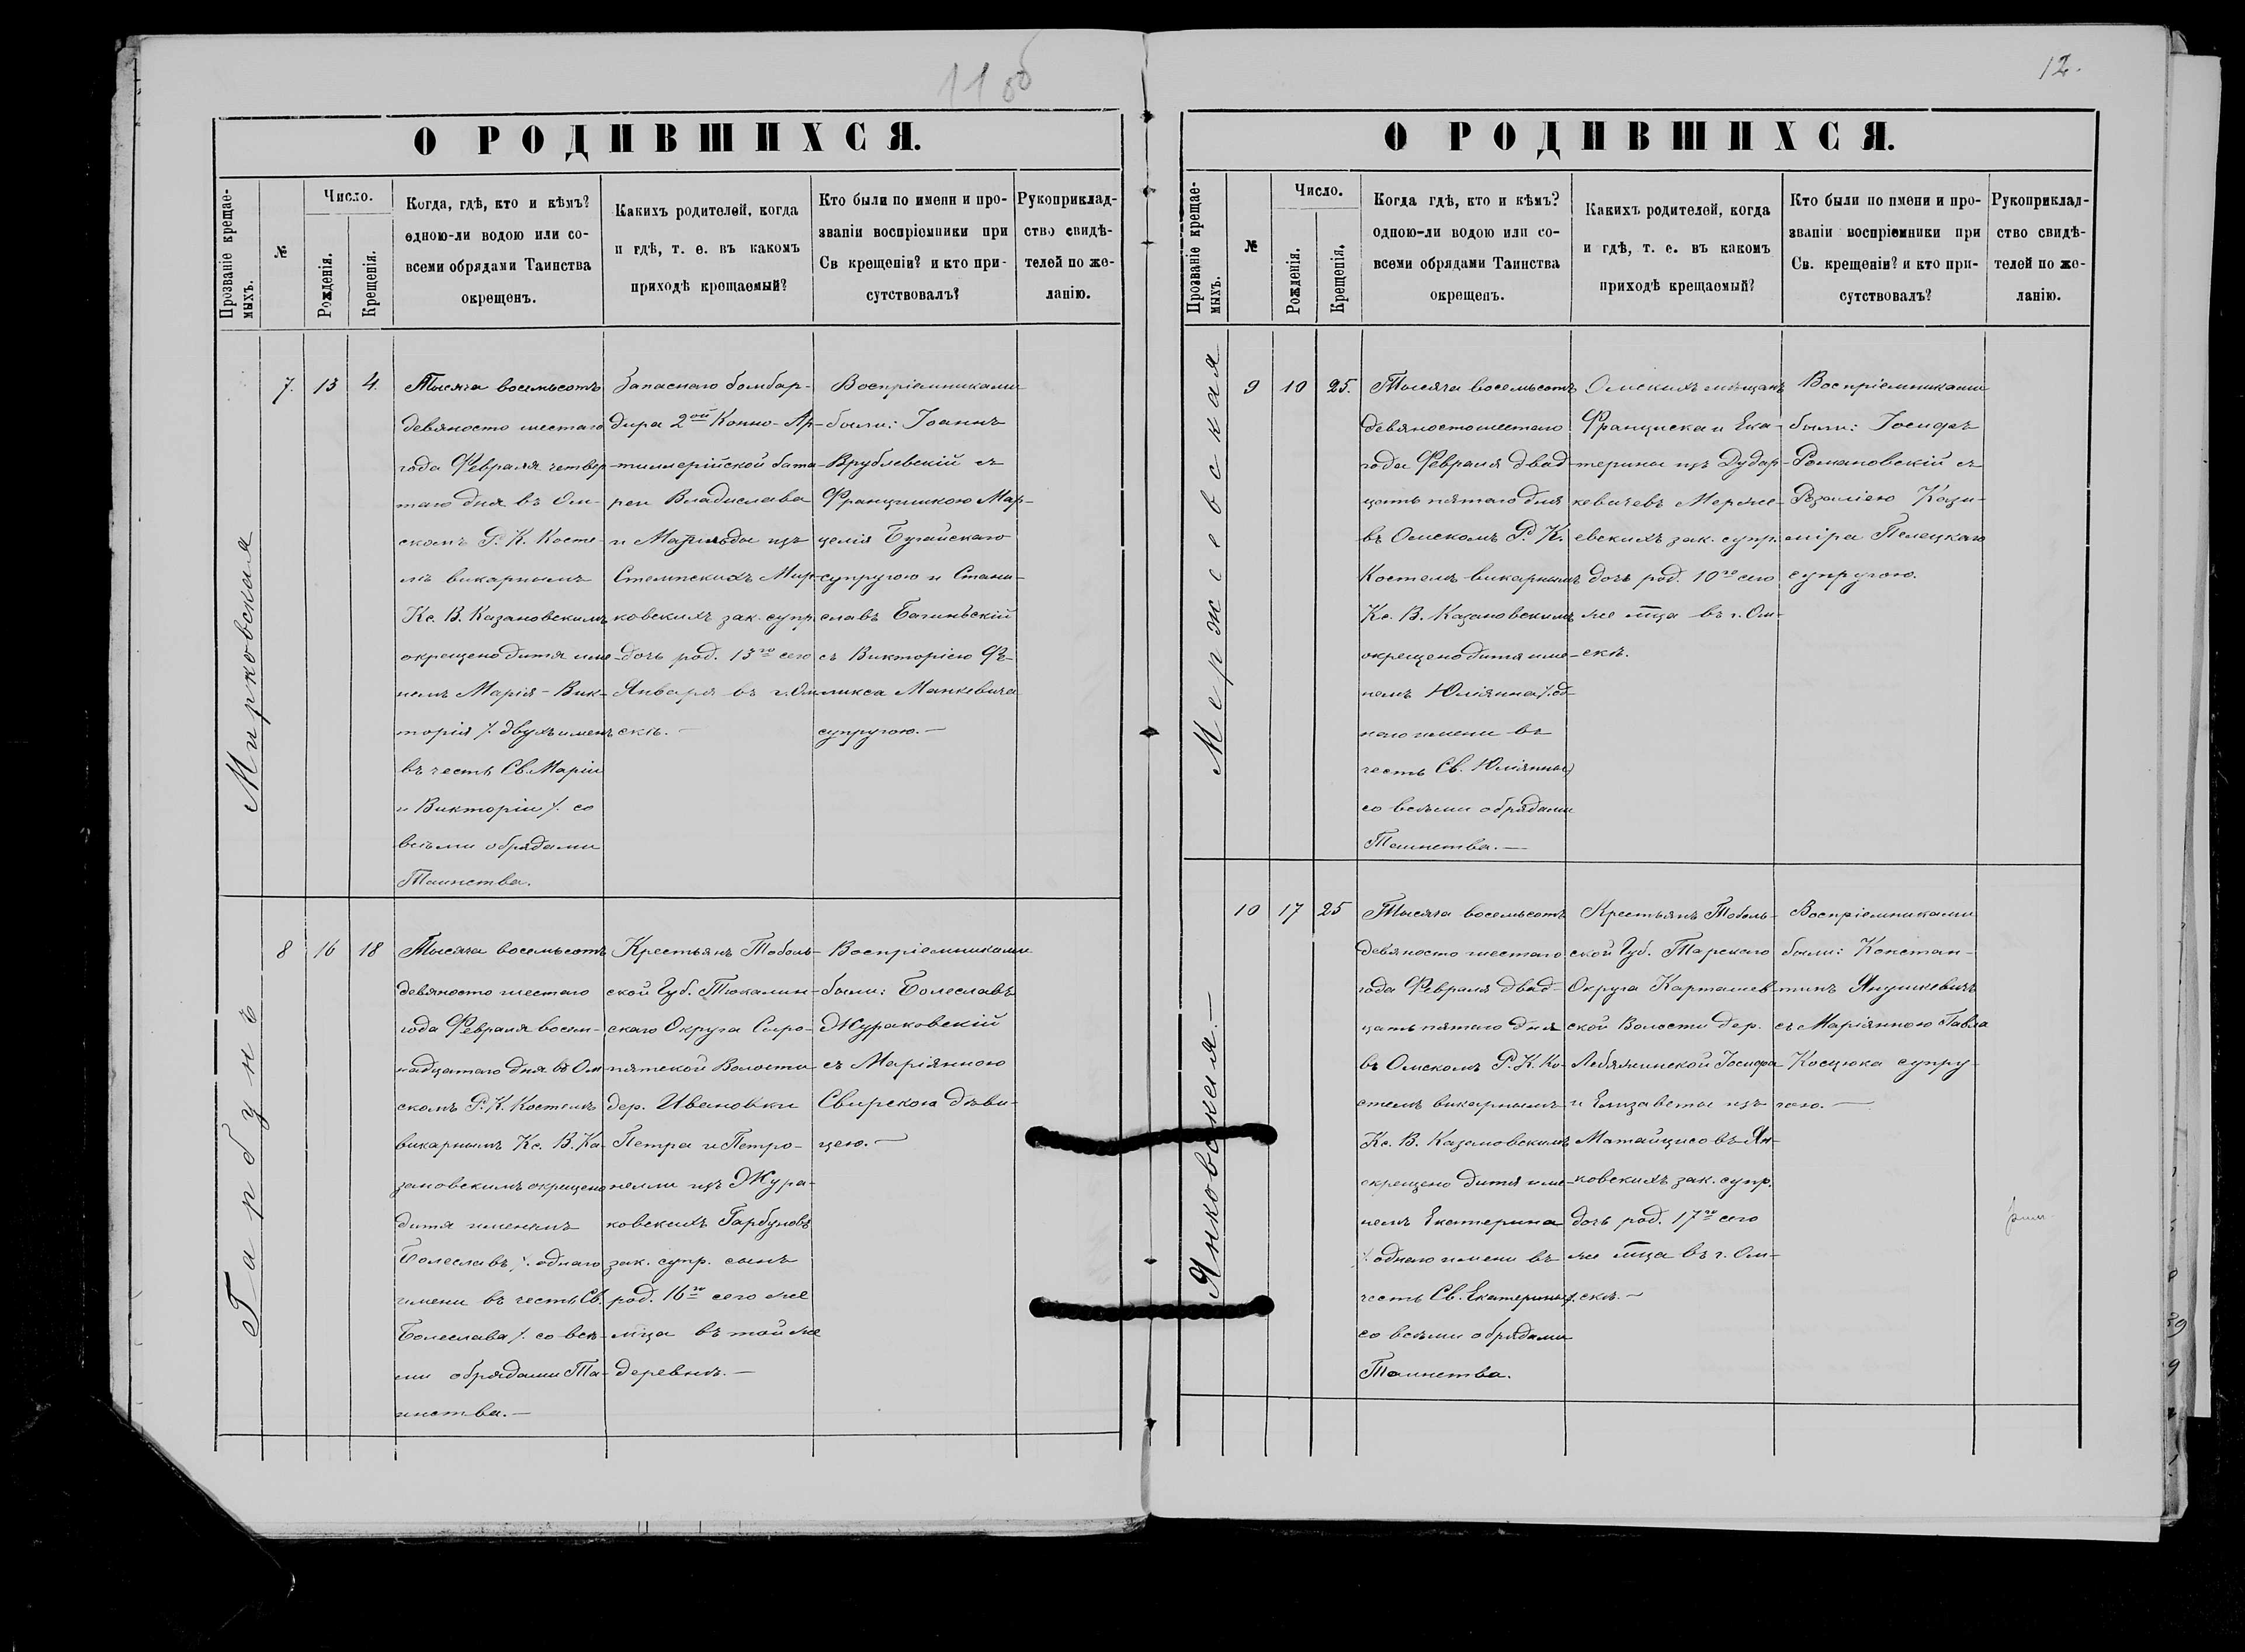 11 об
О РОДИВШИХСЯ.
Прозваніе крещае-
мыхъ.
№
Число.
Рожденія.
Крещенія.
Когда, гдѣ, кто и кѣмъ?
одною-ли водою или со-
всеми обрядами Таинства
окрещенъ.
Какихъ родителей, когда
и гдѣ, т. е. въ какомъ
приходѣ крещаемый?
Кто были по имени и про-
званіи воспріемники при
Св крещеніи? и кто при-
сутствовалъ?
Рукоприклад-
ство свидѣ-
телей по же-
ланію.
Мирковская
7.
13
4
Тысяча восемьсотъ
девяносто шестаго
года Февраля четвер-
таго дня въ Ом-
скомъ Р. К. Косте-
лѣ викарнымъ
Кс. В. Казановскимъ
окрещено дитя име-
немъ Марія-Вик-
торія /. двухъ именъ
въ честь Св. Маріи
и Викторіи /. со
всѣми обрядами
Таинства.
Запаснаго бомбар-
дира 2ой Конно-Ар-
тиллерійской бата-
реи Владислава
и Матильды изъ
Стемпскихъ Мир-
ковскихъ зак. супр.
дочь род. 13го сего
Января въ г. Ом-
скѣ. —
Воспріемниками
были: Іоаннъ
Врублевскій съ
Францишкою Мар-
целія Бугайскаго
супругою и Стани-
славъ Багинскій
съ Викторіею Фе-
ликса Манкевича
супругою. —
Гарбунъ
8
16
18
Тысяча восемьсотъ
девяносто шестаго
года Февраля восем-
надцатаго дня въ Ом-
скомъ Р. К. Костелѣ
викарнымъ Кс. В. Ка-
зановскимъ окрещено
дитя именемъ
Болеславъ /. однаго
имени въ честь Св.
Болеслава /. со всѣ-
ми обрядами Та-
инства. —
Крестьянъ Тоболь-
ской Губ. Тюкалин-
скаго Округа Сыро-
пятской Волости
дер. Ивановки
Петра и Петро-
нелли изъ Жура-
ковскихъ Гарбуновъ
зак. супр. сынъ
род. 16го сего же
мца въ той же
деревнѣ. —
Воспріемниками
были: Болеславъ
Жураковскій
съ Маріянною
Свирскою дѣви-
цею. —
12.
О РОДИВШИХСЯ.
Прозваніе крещае-
мыхъ.
№
Число.
Рожденія.
Крещенія.
Когда гдѣ, кто и кѣмъ?
одною-ли водою или со-
всеми обрядами Таинства
окрещенъ.
Какихъ родителей, когда
и гдѣ, т. е. въ какомъ
приходѣ крещаемый?
Кто были по имени и про-
званіи воспріемники при
Св. крещеніи? и кто при-
сутствовалъ?
Рукоприклад-
ство свидѣ-
телей по же-
ланію.
Мержеевская
9
10
25.
Тысяча восемьсотъ
девяносто шестаго
года Февраля двад-
цать пятаго дня
въ Омскомъ Р. К.
Костелѣ викарнымъ
Кс. В. Казановскимъ
окрещено дитя име-
немъ Юліянна /. од-
ного имени въ
честь Св. Юліянны)
со всѣми обрядами
Таинства. —
Омскихъ мѣщанъ
Франциска и Ека-
терины изъ Дудар-
кевичевъ Мерже-
евскихъ зак. супр.
дочь род. 10го сего
же мца въ г. Ом-
скѣ.
Воспріемниками
были: Іосифъ
Романовскій съ
Розаліею Кази-
міра Пелецкаго
супругою.
Янковская. —
10
17
25
Тысяча восемьсотъ
девяносто шестаго
года Февраля двад-
цать пятаго дня
въ Омскомъ Р. К. Ко-
стелѣ викарнымъ
Кс. В. Казановскимъ
окрещено дитя име-
немъ Екатерина
/. однаго имени въ
честь Св. Екатерины /.
со всѣми обрядами
Таинства.
Крестьянъ Тоболь-
ской Губ. Тарскаго
Округа Карташев-
ской Волости дер.
Лебяжинской Іосифа
и Елизаветы изъ
Матайцисовъ Ян-
ковскихъ зак. супр.
дочь род. 17го сего
же мца въ г. Ом-
скѣ. —
Воспріемниками
были: Констан-
тинъ Янушкевичъ
съ Маріянною Павла
Косцюка супру-
гою. —